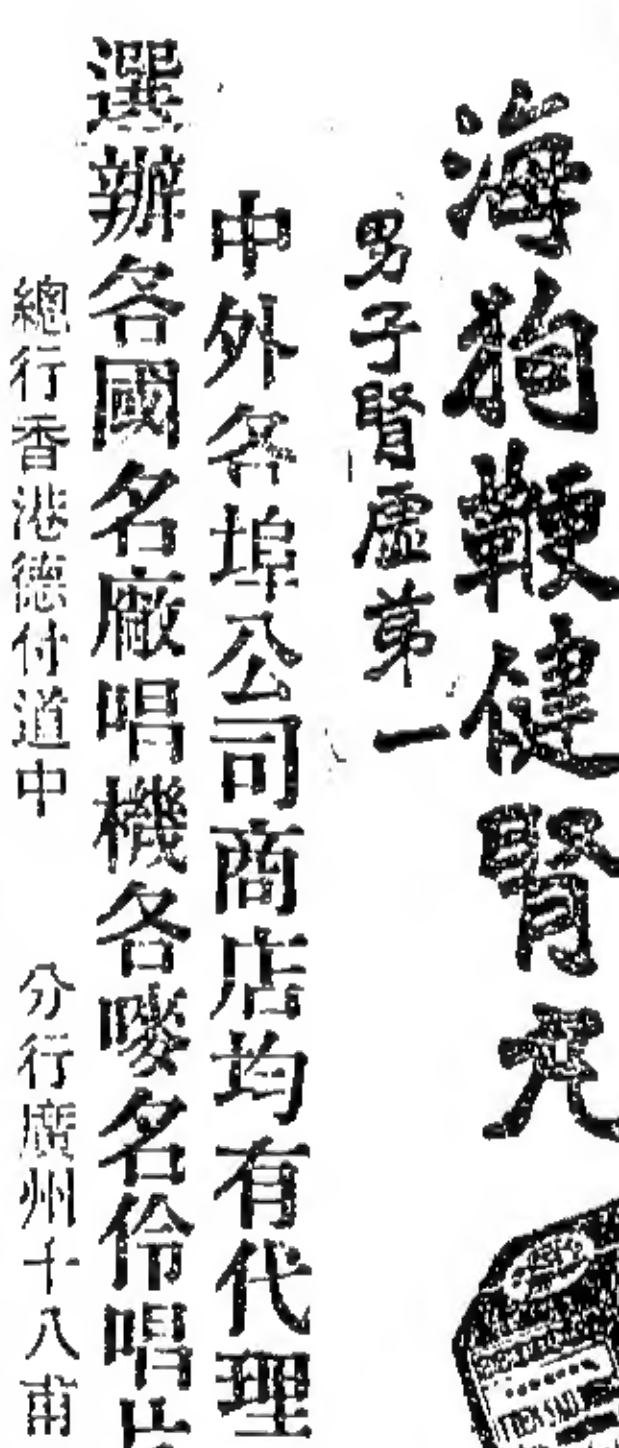 海狗鞭健腎丸
男子腎虛第一
中外各埠公司商店均有代理
選辦各國名廠唱機各嘜名伶唱片
總行香港德付道中
分行廣州十八甫